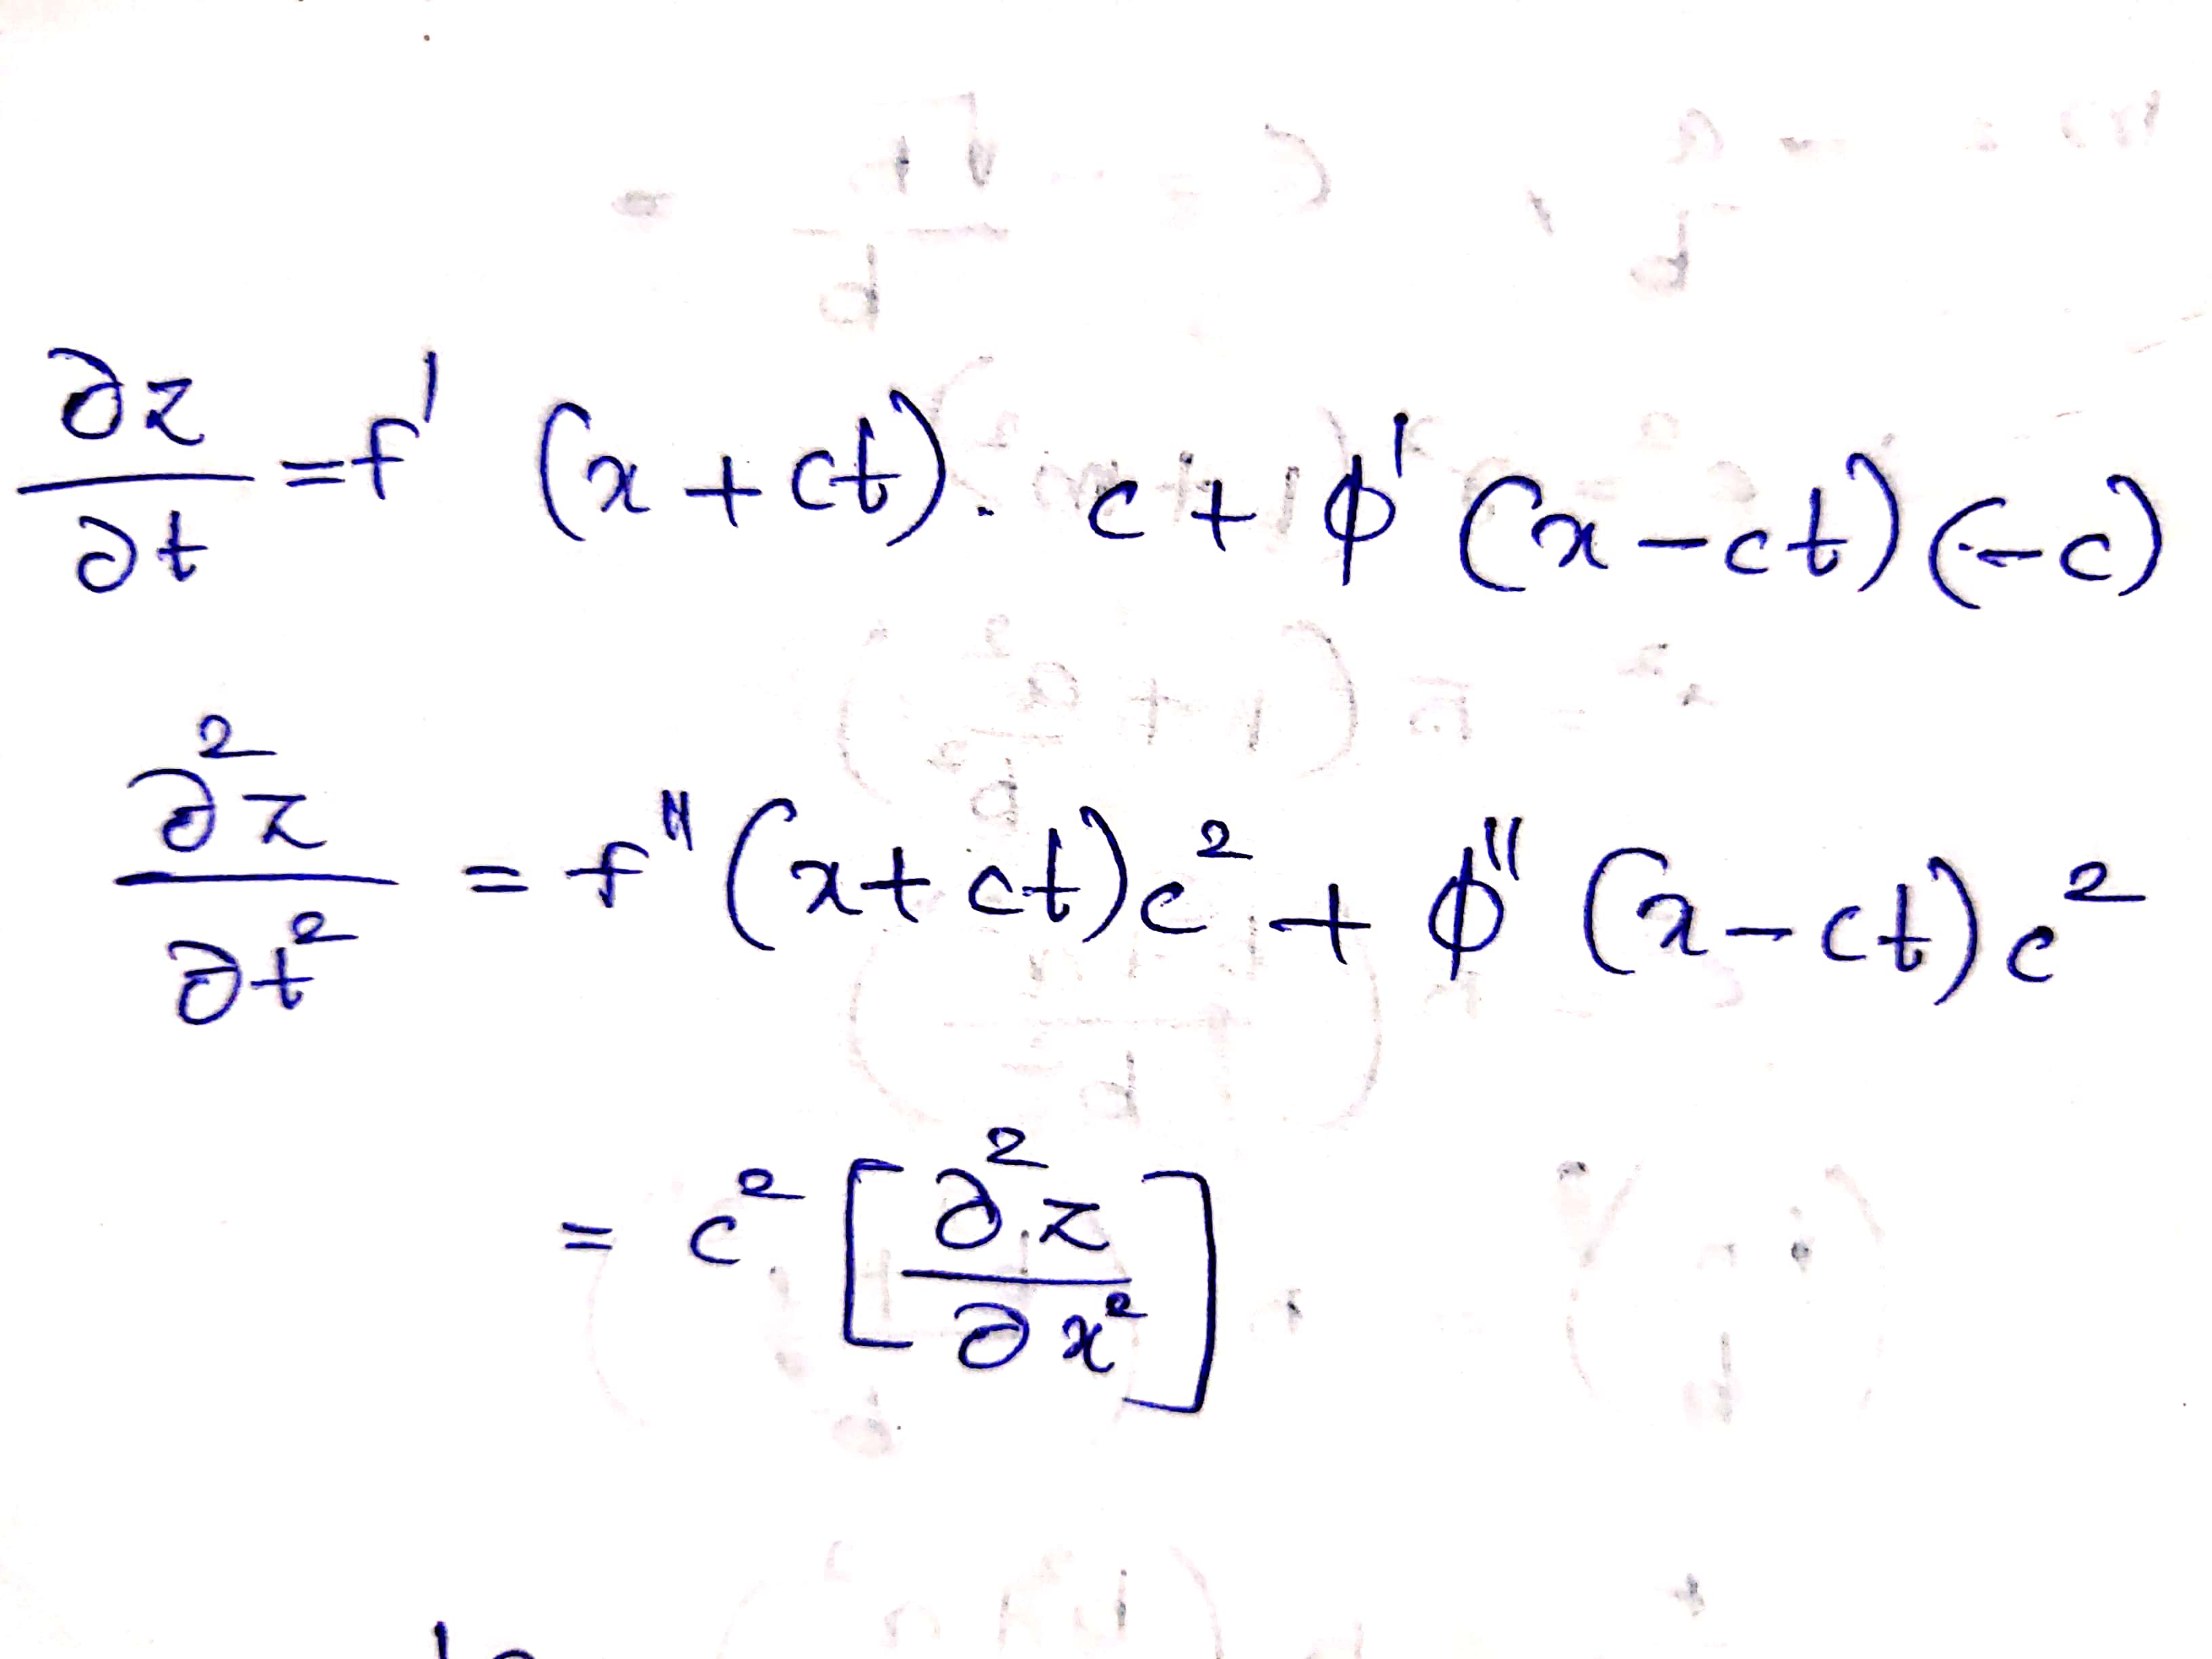 ∂z/∂t = f' (x + ct). c + ϕ' (x - ct) (-c)
∂²z/∂t² = f'' (x + ct) c² + ϕ'' (x - ct) c²
= c² [∂²z/∂x²]